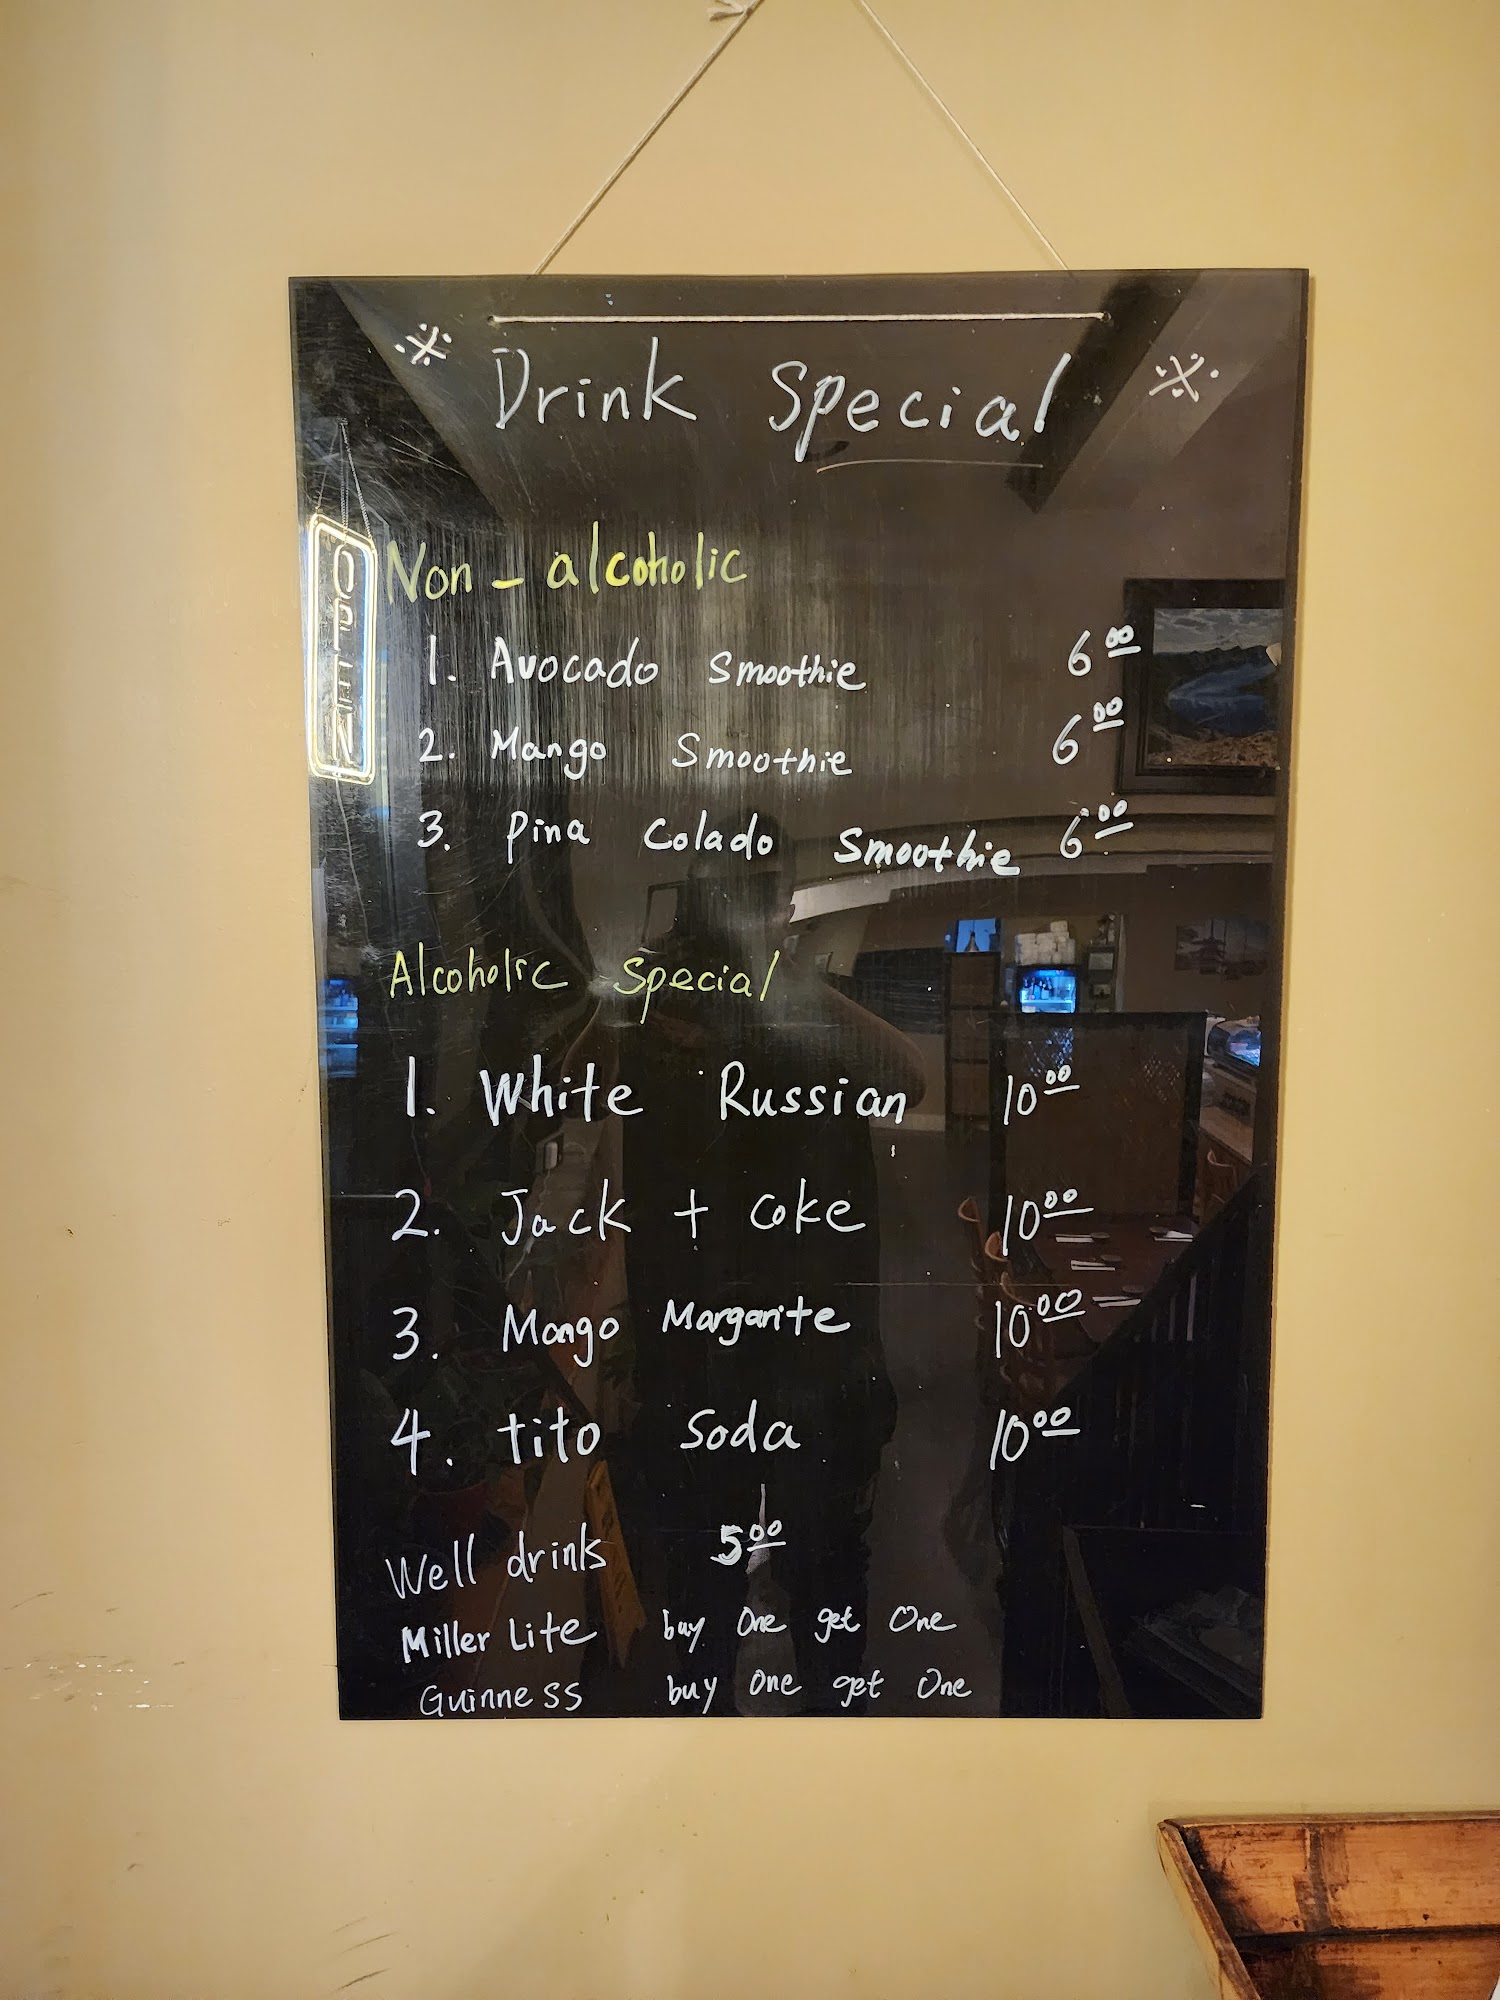 ※ Drink Special ※
OPEN
Non-alcoholic
1. Avocado Smoothie 6.00
2. Mango Smoothie 6.00
3. Pina Colado Smoothie 6.00
Alcoholic Special
1. White Russian 10.00
2. Jack + Coke 10.00
3. Mango Margarite 10.00
4. tito Soda 10.00
Well drink 5.00
Miller Lite buy One get One
Guinness buy One get One